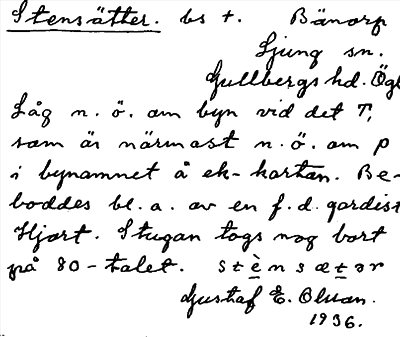 Stensätter. bs t. Bänorp
Ljung sn.
Gullbergs hd. Ögl
Låg n. ö. om byn vid det T,
som är närmast n. ö. om p
i bynamnet å ek-kartan. Be-
boddes bl. a. av en f. d. gardist
Hjort. Stugan togs nog bort
på 80-talet. stènsætər
Gustaf E. Olsson.
1936.